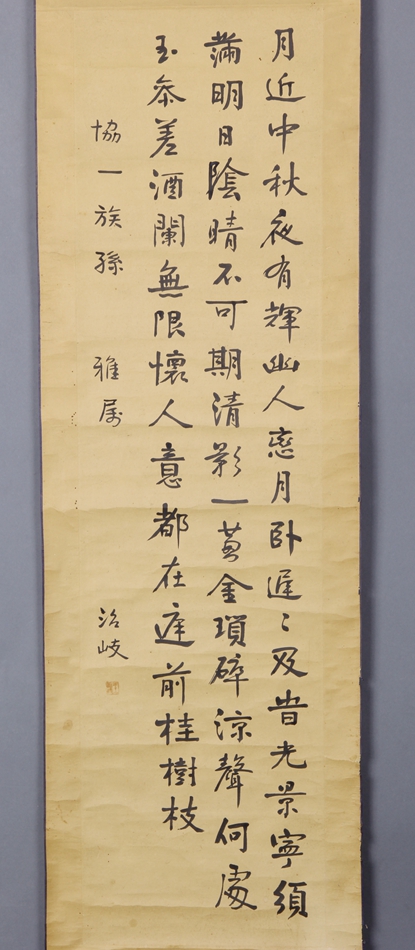 月近中秋夜有輝幽人戀月卧遲〻及旹光景寧須
滿明日陰晴不可期清影一金瑣碎涼聲何處
玉參差酒闌無限懷人意都在庭前桂樹枝
協一族孫 雅屬
岐